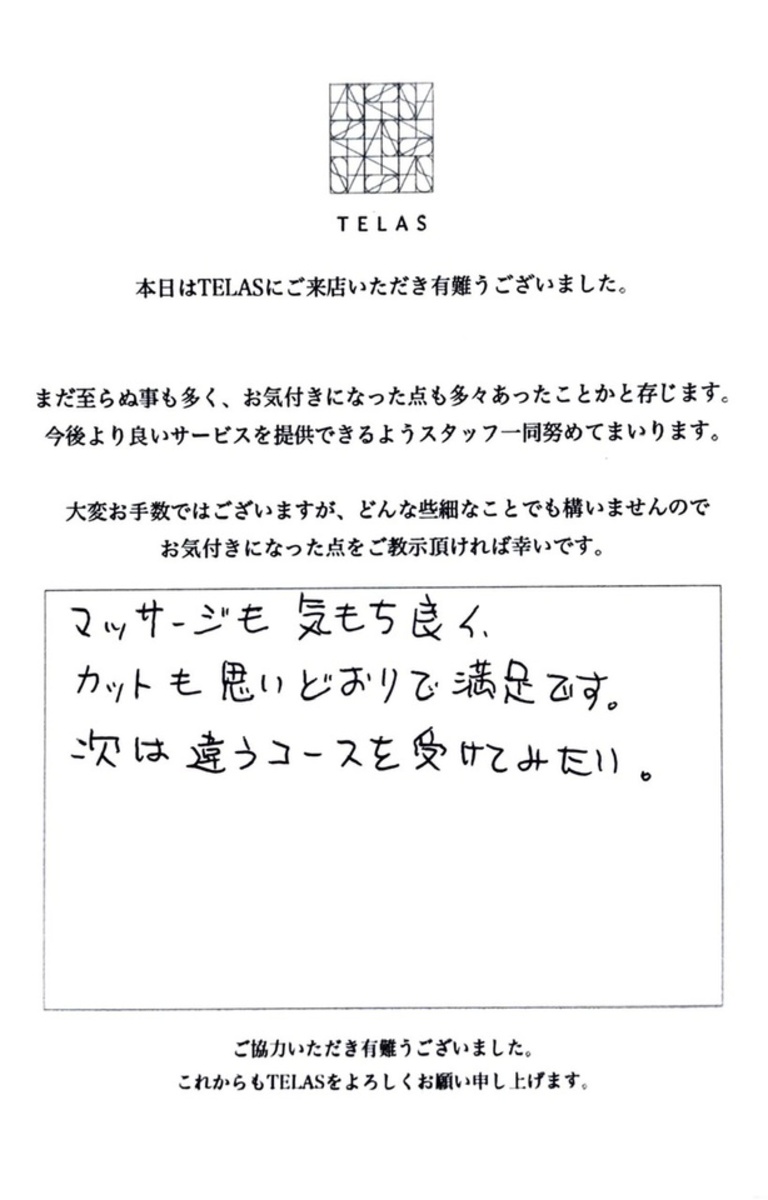 TELAS
本日はTELASにご来店いただき有難うございました。
まだ至らぬ事も多く、お気付きになった点も多々あったことかと存じます。
今後より良いサービスを提供できるようスタッフ一同努めてまいります。
大変お手数ではございますが、どんな些細なことでも構いませんので
お気付きになった点をご教示頂ければ幸いです。
マッサージも 気もち良く、
カットも 思いどおりで 満足です。
次は 違うコースを 受けてみたい。
ご協力いただき有難うございました。
これからもTELASをよろしくお願い申し上げます。